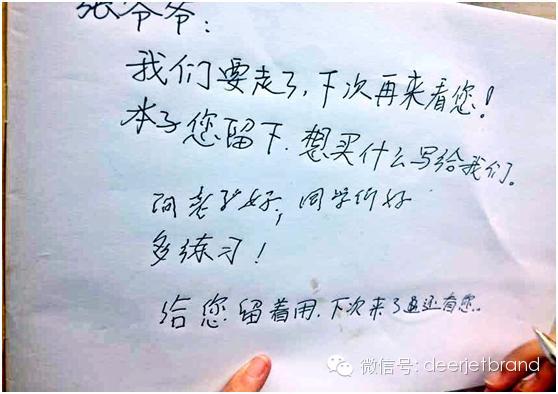 张爷爷：
我们要走了，下次再来看您！
本子您留下．想买什么写给我们。
阿老师好；同学们好
多练习！
给您留着用．下次来了还看您．
微信号: deerjetbrand